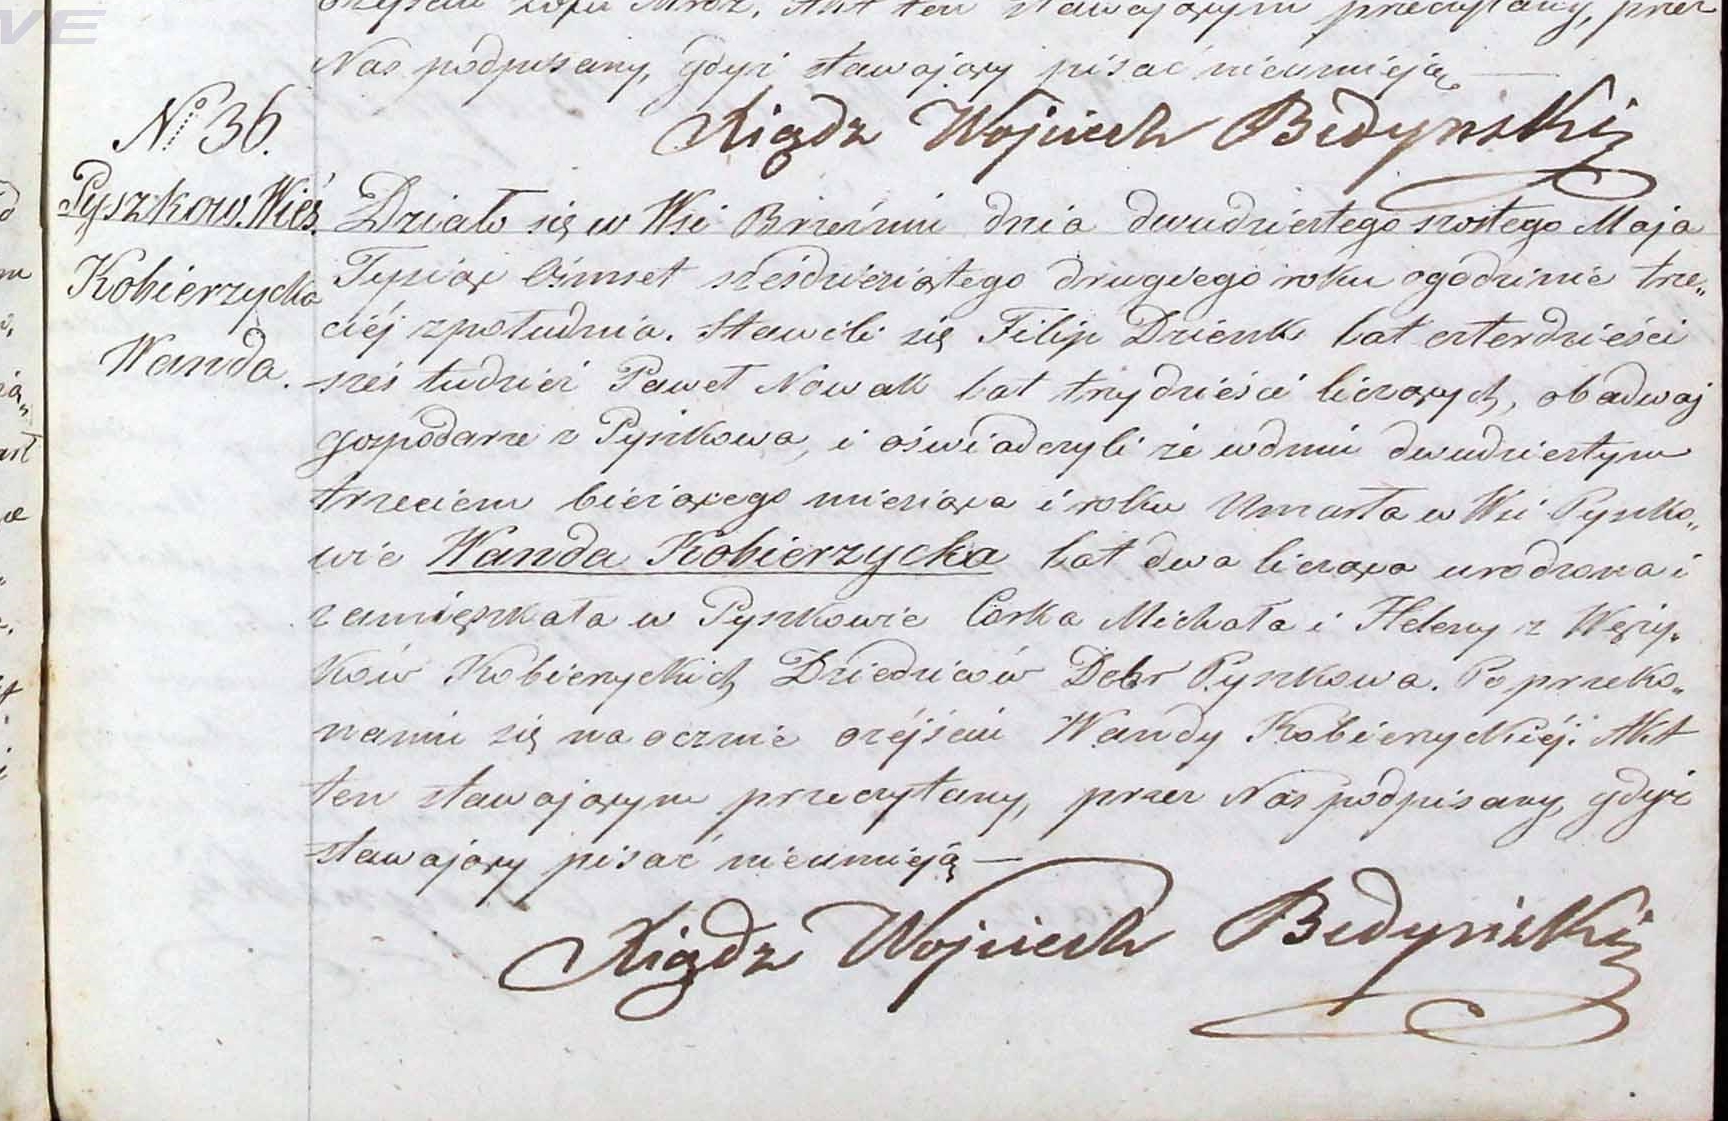 VE
Nas podpisany, gdyż stawający pisać nieumieją
Xiądz Wojciech Bedyński
N° 36.
Pyszkow. Wieś.
Kobierzycka
Wanda.
Działo się w Wsi Brzeźniu dnia dwudziestego szóstego Maja
Tysiąc Ośmset sześdziesiątego drugiego roku ogodzinie trze„
ciéj zpołudnia. Stawili się Filip Dzienk lat czterdzieści
sześ tudzież Paweł Nowak lat trzydzieści liczących, obadwaj
gospodarze z Pyszkowa, i oświadczyli że wdniu dwudziestym
trzeciem bieżącego miesiąca i roku Umarła w Wsi Pyszko„
wie Wanda Kobierzycka lat dwa licząca urodzona i
zamięszkała w Pyszkowie Corka Michała i Heleny z Węży„
ków Kobierzyckich Dziedziców Dobr Pyszkowa. Po przeko„
naniu się naocznie ozéjściu Wandy Kobierzyckiéj. Akt
ten stawającym przeczytany, przez Nas podpisany, gdyż
stawający pisać nieumieją —
Xiądz Wojciech Bedyński